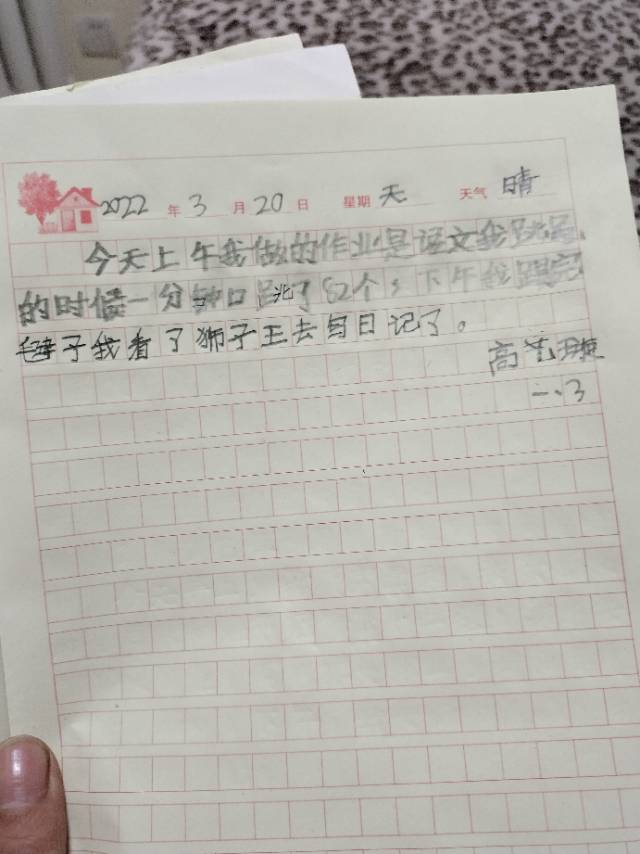 2022年3月20日 星期天 天气晴
今天上午我做的作业是语文我跳绳
的时候一分钟口跳了82个，下午我踢完
毽子我看了狮子王去写日记了。
高
一、3